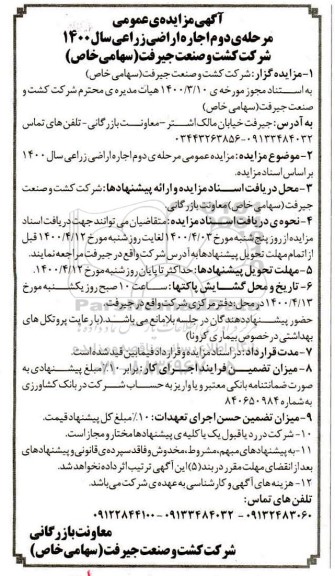 آگهی مزایده‌ی عمومی
مرحله‌ی دوم اجاره اراضی زراعی سال ۱۴۰۰
شرکت کشت و صنعت جیرفت (سهامی خاص)
۱- مزایده گزار: شرکت کشت و صنعت جیرفت (سهامی خاص)
به استناد مجوز مورخه ی ۱۴۰۰/۳/۱۰ هیات مدیره ی محترم شرکت کشت و
صنعت جیرفت (سهامی خاص)
به آدرس: جیرفت خیابان مالک اشتر - معاونت بازرگانی - تلفن های تماس
۰۹۱۳۳۴۸۴۰۳۲-۰۳۴۴۳۲۶۳۸۵۶
۲- موضوع مزایده: مزایده عمومی مرحله ی دوم اجاره اراضی زراعی سال ۱۴۰۰
بر اساس اسناد مزایده.
۳- محل دریافت اسناد مزایده و ارائه پیشنهادها: شرکت کشت و صنعت
جیرفت (سهامی خاص) معاونت بازرگانی
۴- نحوه ی دریافت اسناد مزایده: متقاضیان می توانند جهت دریافت اسناد
مزایده از روز پنج شنبه مورخ ۱۴۰۰/۴/۰۳ لغایت روز شنبه مورخ ۱۴۰۰/۴/۱۲ قبل
از اتمام مهلت تحویل پیشنهادها به آدرس شرکت واقع در جیرفت مراجعه نمایند.
۵- مهلت تحویل پیشنهادها: حداکثر تا پایان روز شنبه مورخ ۱۴۰۰/۴/۱۲.
۶- تاریخ و محل گشایش پاکتها: ساعت ۱۰ صبح روز یکشنبه مورخ
۱۴۰۰/۴/۱۳ در محل: دفتر مرکزی شرکت واقع در جیرفت.
حضور پیشنهاددهندگان در جلسه بلامانع می باشد. (با رعایت پروتکل های
بهداشتی در خصوص بیماری کرونا)
۷- مدت قرارداد: در اسناد مزایده و قرارداد فیمابین قید شده است.
۸- میزان تضمین فرایند اجرای کار: برابر ۱۰٪ مبلغ پیشنهادی به
صورت ضمانتنامه بانکی معتبر و یا واریز به حساب شرکت در بانک کشاورزی
به شماره ۸۴۰۶۵۰۹۸۴
۹- میزان تضمین حسن اجرای تعهدات: ۱۰٪ مبلغ کل پیشنهاد قیمت.
۱۰- شرکت در رد یا قبول یک یا کلیه ی پیشنهادها مختار و مجاز است.
۱۱- به پیشنهادهای مبهم، مشروط، مخدوش و فاقد سپرده ی قانونی و پیشنهادهای
بعد از انقضای مهلت مقرر در بند (۵) این آگهی ترتیب اثر داده نخواهد شد.
۱۲- هزینه های آگهی و کارشناسی به عهده ی شرکت می باشد.
تلفن های تماس:
۰۹۱۳۲۴۸۳۰۶۰-۰۹۱۳۳۴۸۴۰۳۲-۰۹۱۲۲۸۴۴۱۰۰
معاونت بازرگانی
شرکت کشت و صنعت جیرفت (سهامی خاص)